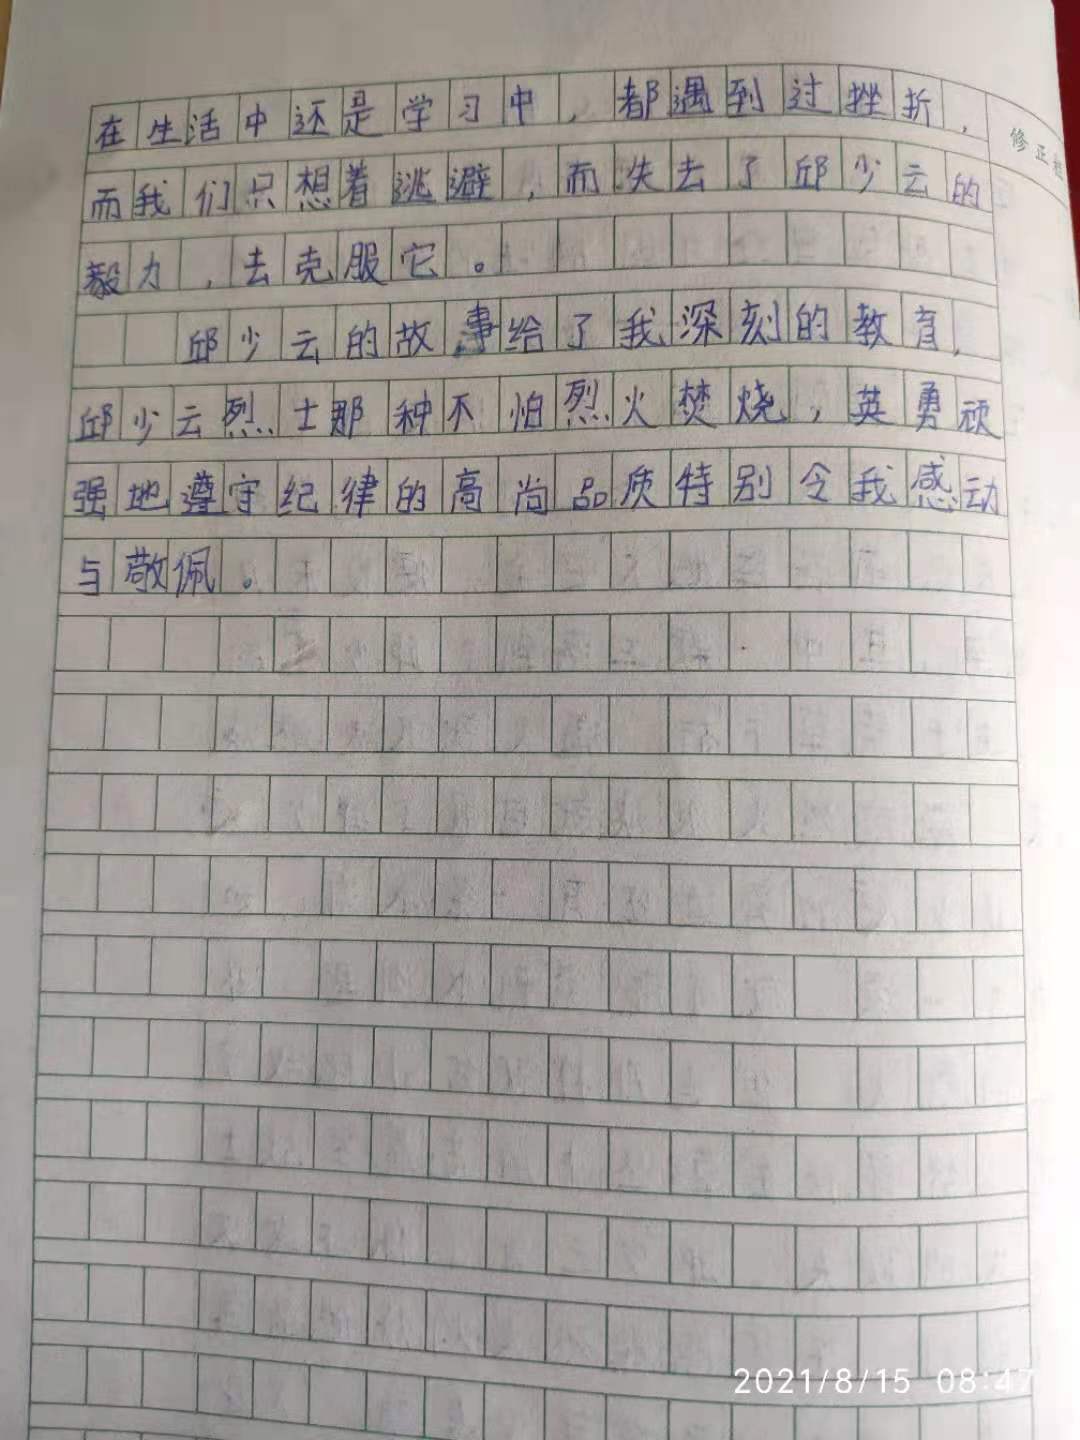 在生活中还是学习中，都遇到过挫折，
修正
而我们只想着逃避，而失去了邱少云的
毅力，去克服它。
邱少云的故事给了我深刻的教育，
邱少云烈士那种不怕烈火焚烧，英勇顽
强地遵守纪律的高尚品质特别令我感动
与敬佩。
2021/8/15 08:47